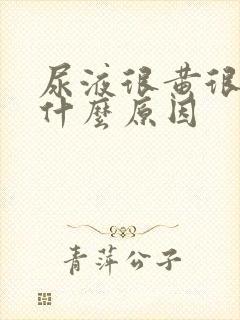 尿液很黄很
什麼原因
青萍公子